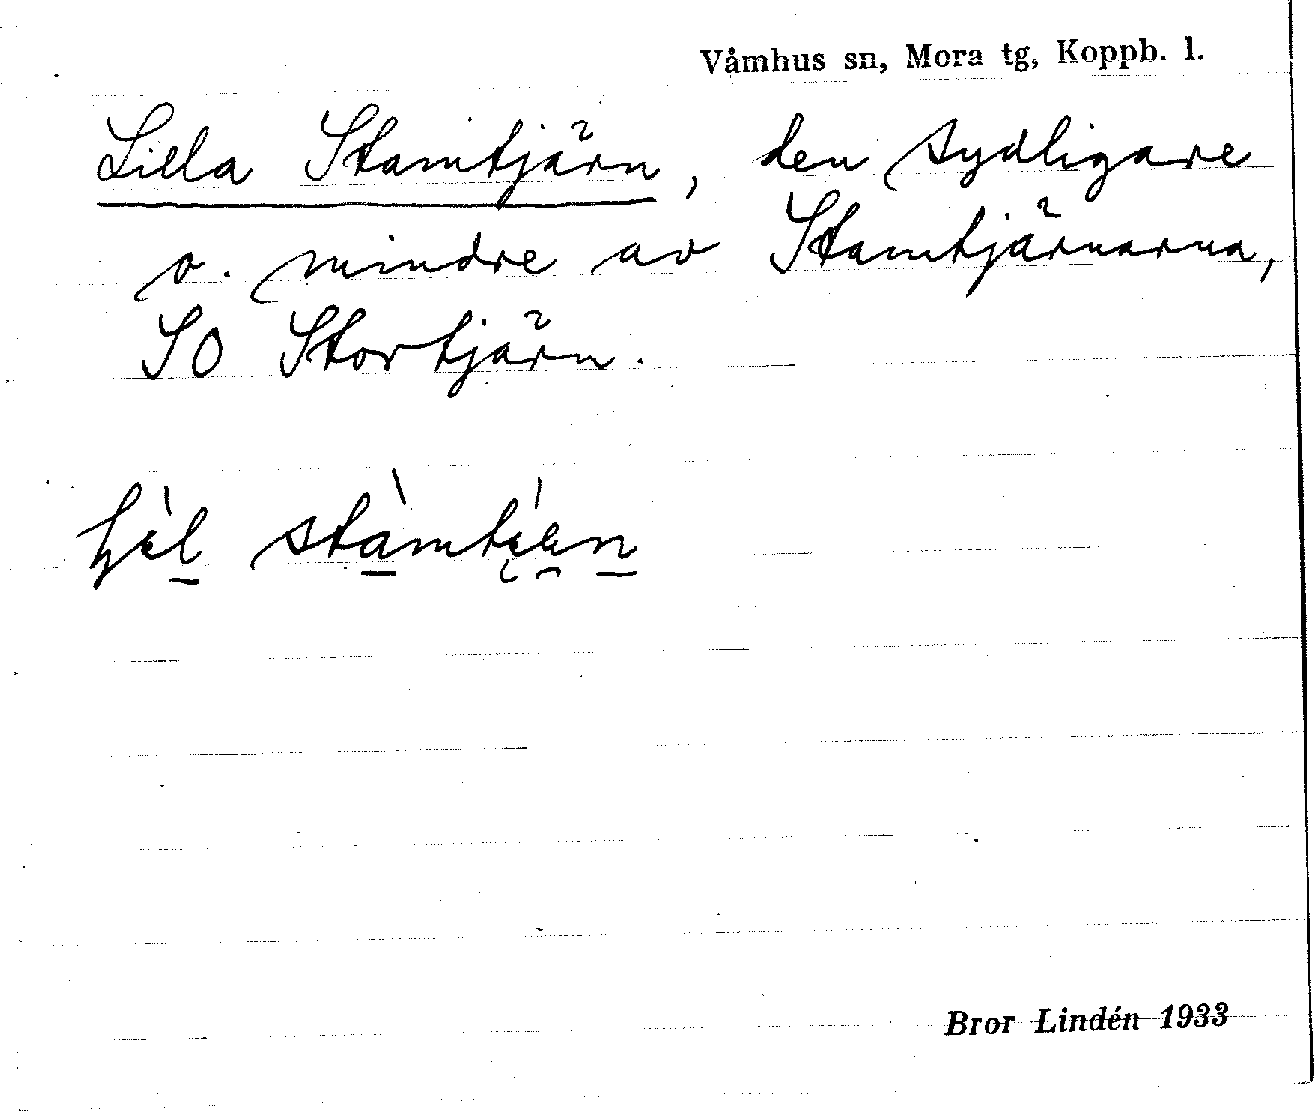 Våmhus sn, Mora tg, Koppb. l.
Lilla Stamtjärn, den sydligare
o. mindre av Stamtjärnarna,
SO Stortjärn.
stàmt
Bror Lindén 1933